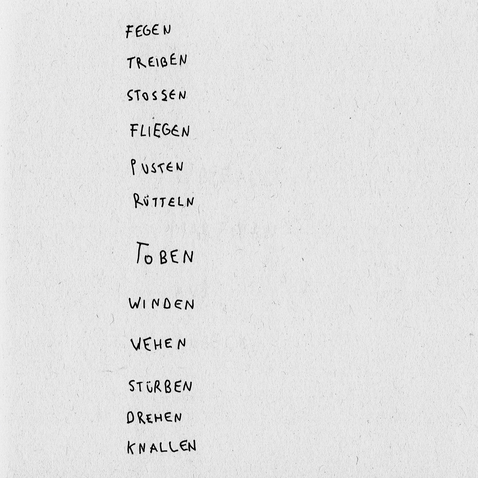 FEGEN
TREIBEN
STOSSEN
FLIEGEN
PUSTEN
RÜTTELN
TOBEN
WINDEN
WEHEN
STÜRBEN
DREHEN
KNALLEN